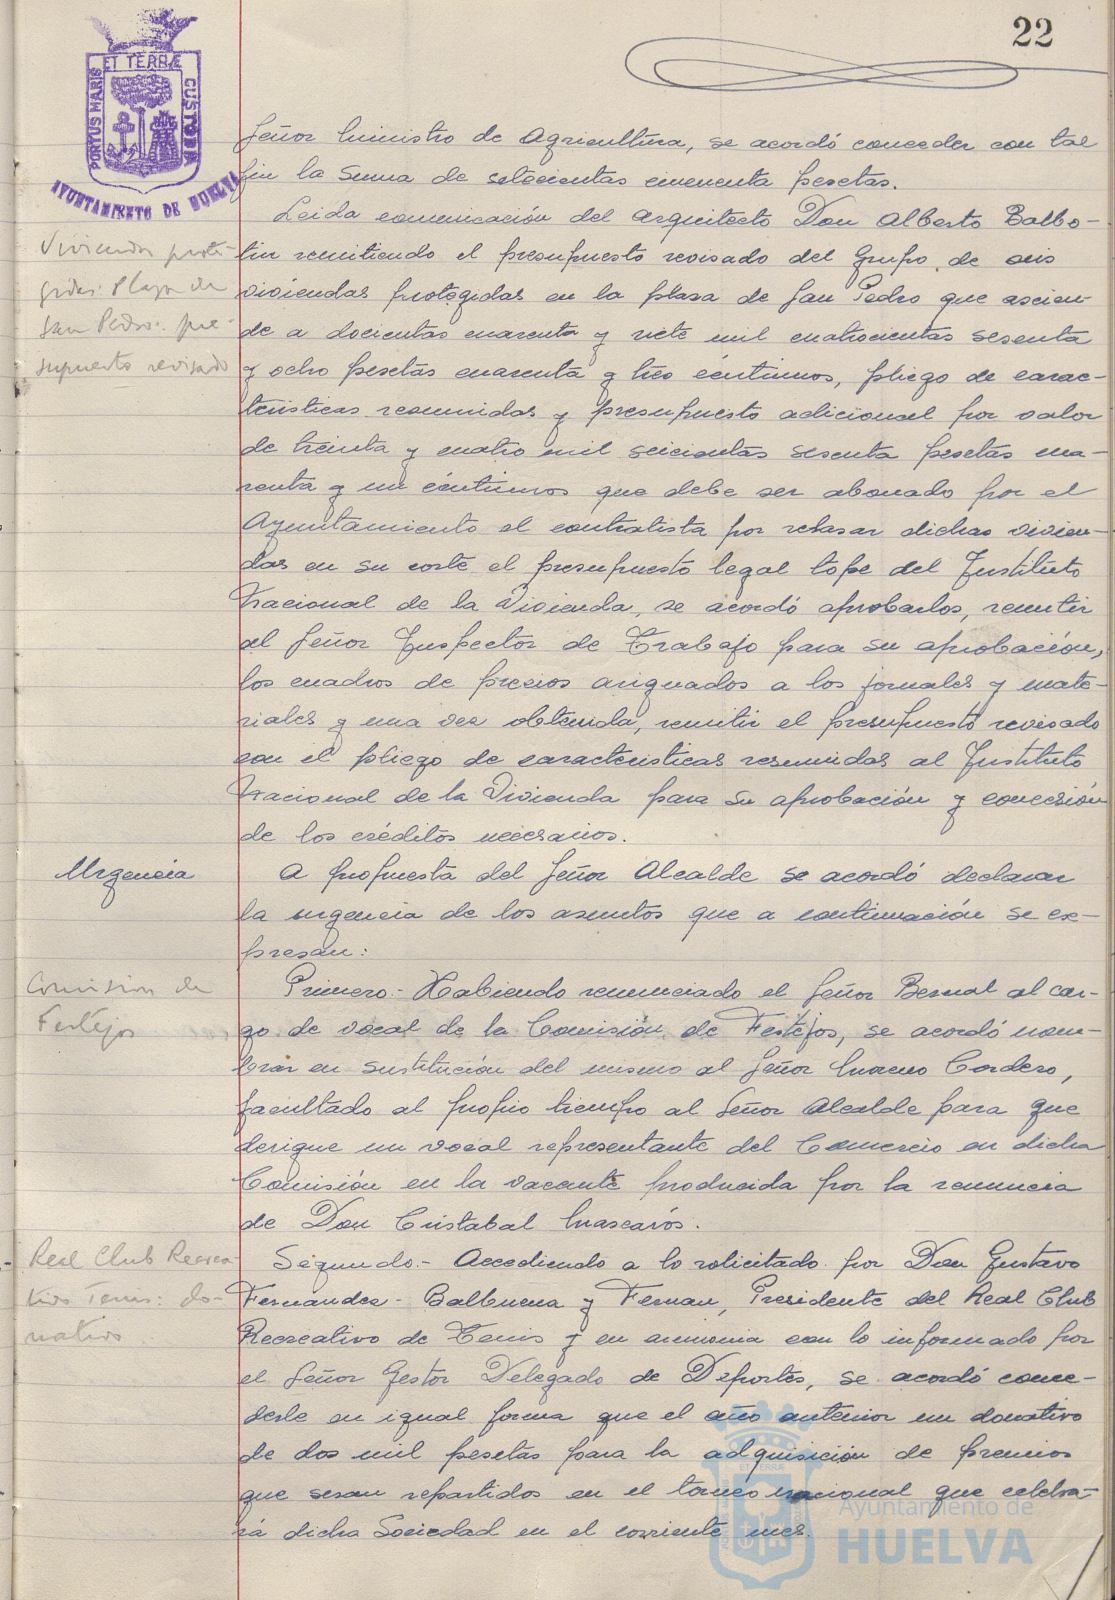 22
PORTUS MARIS ET TERRÆ CUSTODIA
AYUNTAMIENTO DE HUELVA
Señor Ministro de Agricultura, se acordó conceder con tal
fin la suma de setecientas cincuenta pesetas.
Leida comunicación del arquitecto Don Alberto Balbo-
Viviendas prote-
gidas: Plaza de
San Pedro: pre-
supuesto revisado
tin remitiendo el presupuesto revisado del Grupo de seis
viviendas protegidas en la plaza de San Pedro que ascien-
de a docientas cuarenta y siete mil cuatrocientas sesenta
y ocho pesetas cuarenta y tres céntimos, pliego de carac-
teristicas resumidas y presupuesto adicional por valor
de treinta y cuatro mil seicientas sesenta pesetas cua-
renta y un céntimos que debe ser abonado por el
Ayuntamiento al contratista por rebasar dichas vivien-
das en su coste el presupuesto legal tope del Instituto
Nacional de la Vivienda, se acordó aprobarlos, remitir
al Señor Inspector de Trabajo para su aprobación,
los cuadros de precios asignados a los jornales y mate-
riales y una vez obtenida, remitir el presupuesto revisado
con el pliego de caracteristicas resumidas al Instituto
Nacional de la Vivienda para su aprobación y concesión
de los créditos necesarios.
Urgencia
A propuesta del Señor Alcalde se acordó declarar
la urgencia de los asuntos que a continuación se ex-
presan:
Comision de
Festejos
Primero.- Habiendo renunciado el Señor Bernal al car-
go de vocal de la Comisión de Festejos, se acordó nom-
brar en sustitución del mismo al Señor Moreno Cordero,
facultado al propio tiempo al Señor Alcalde para que
derigue un vocal representante del Comercio en dicha
Comisión en la vacante producida por la renuncia
de Don Cristabal Mascarós.
Real Club Recrea-
tivo Tenis: do-
nativo
Segundo.- Accediendo a lo solicitado por Don Gustavo
Fernandez-Balbuena y Fernan, Presidente del Real Club
Recreativo de Tenis y en armonia con lo informado por
el Señor Gestor Delegado de Deportes, se acordó conce-
derle en igual forma que el año anterior un donativo
de dos mil pesetas para la adquisición de premios
que seran repartidos en el torneo nacional que celebra-
rá dicha Sociedad en el corriente mes.
Ayuntamiento de
HUELVA